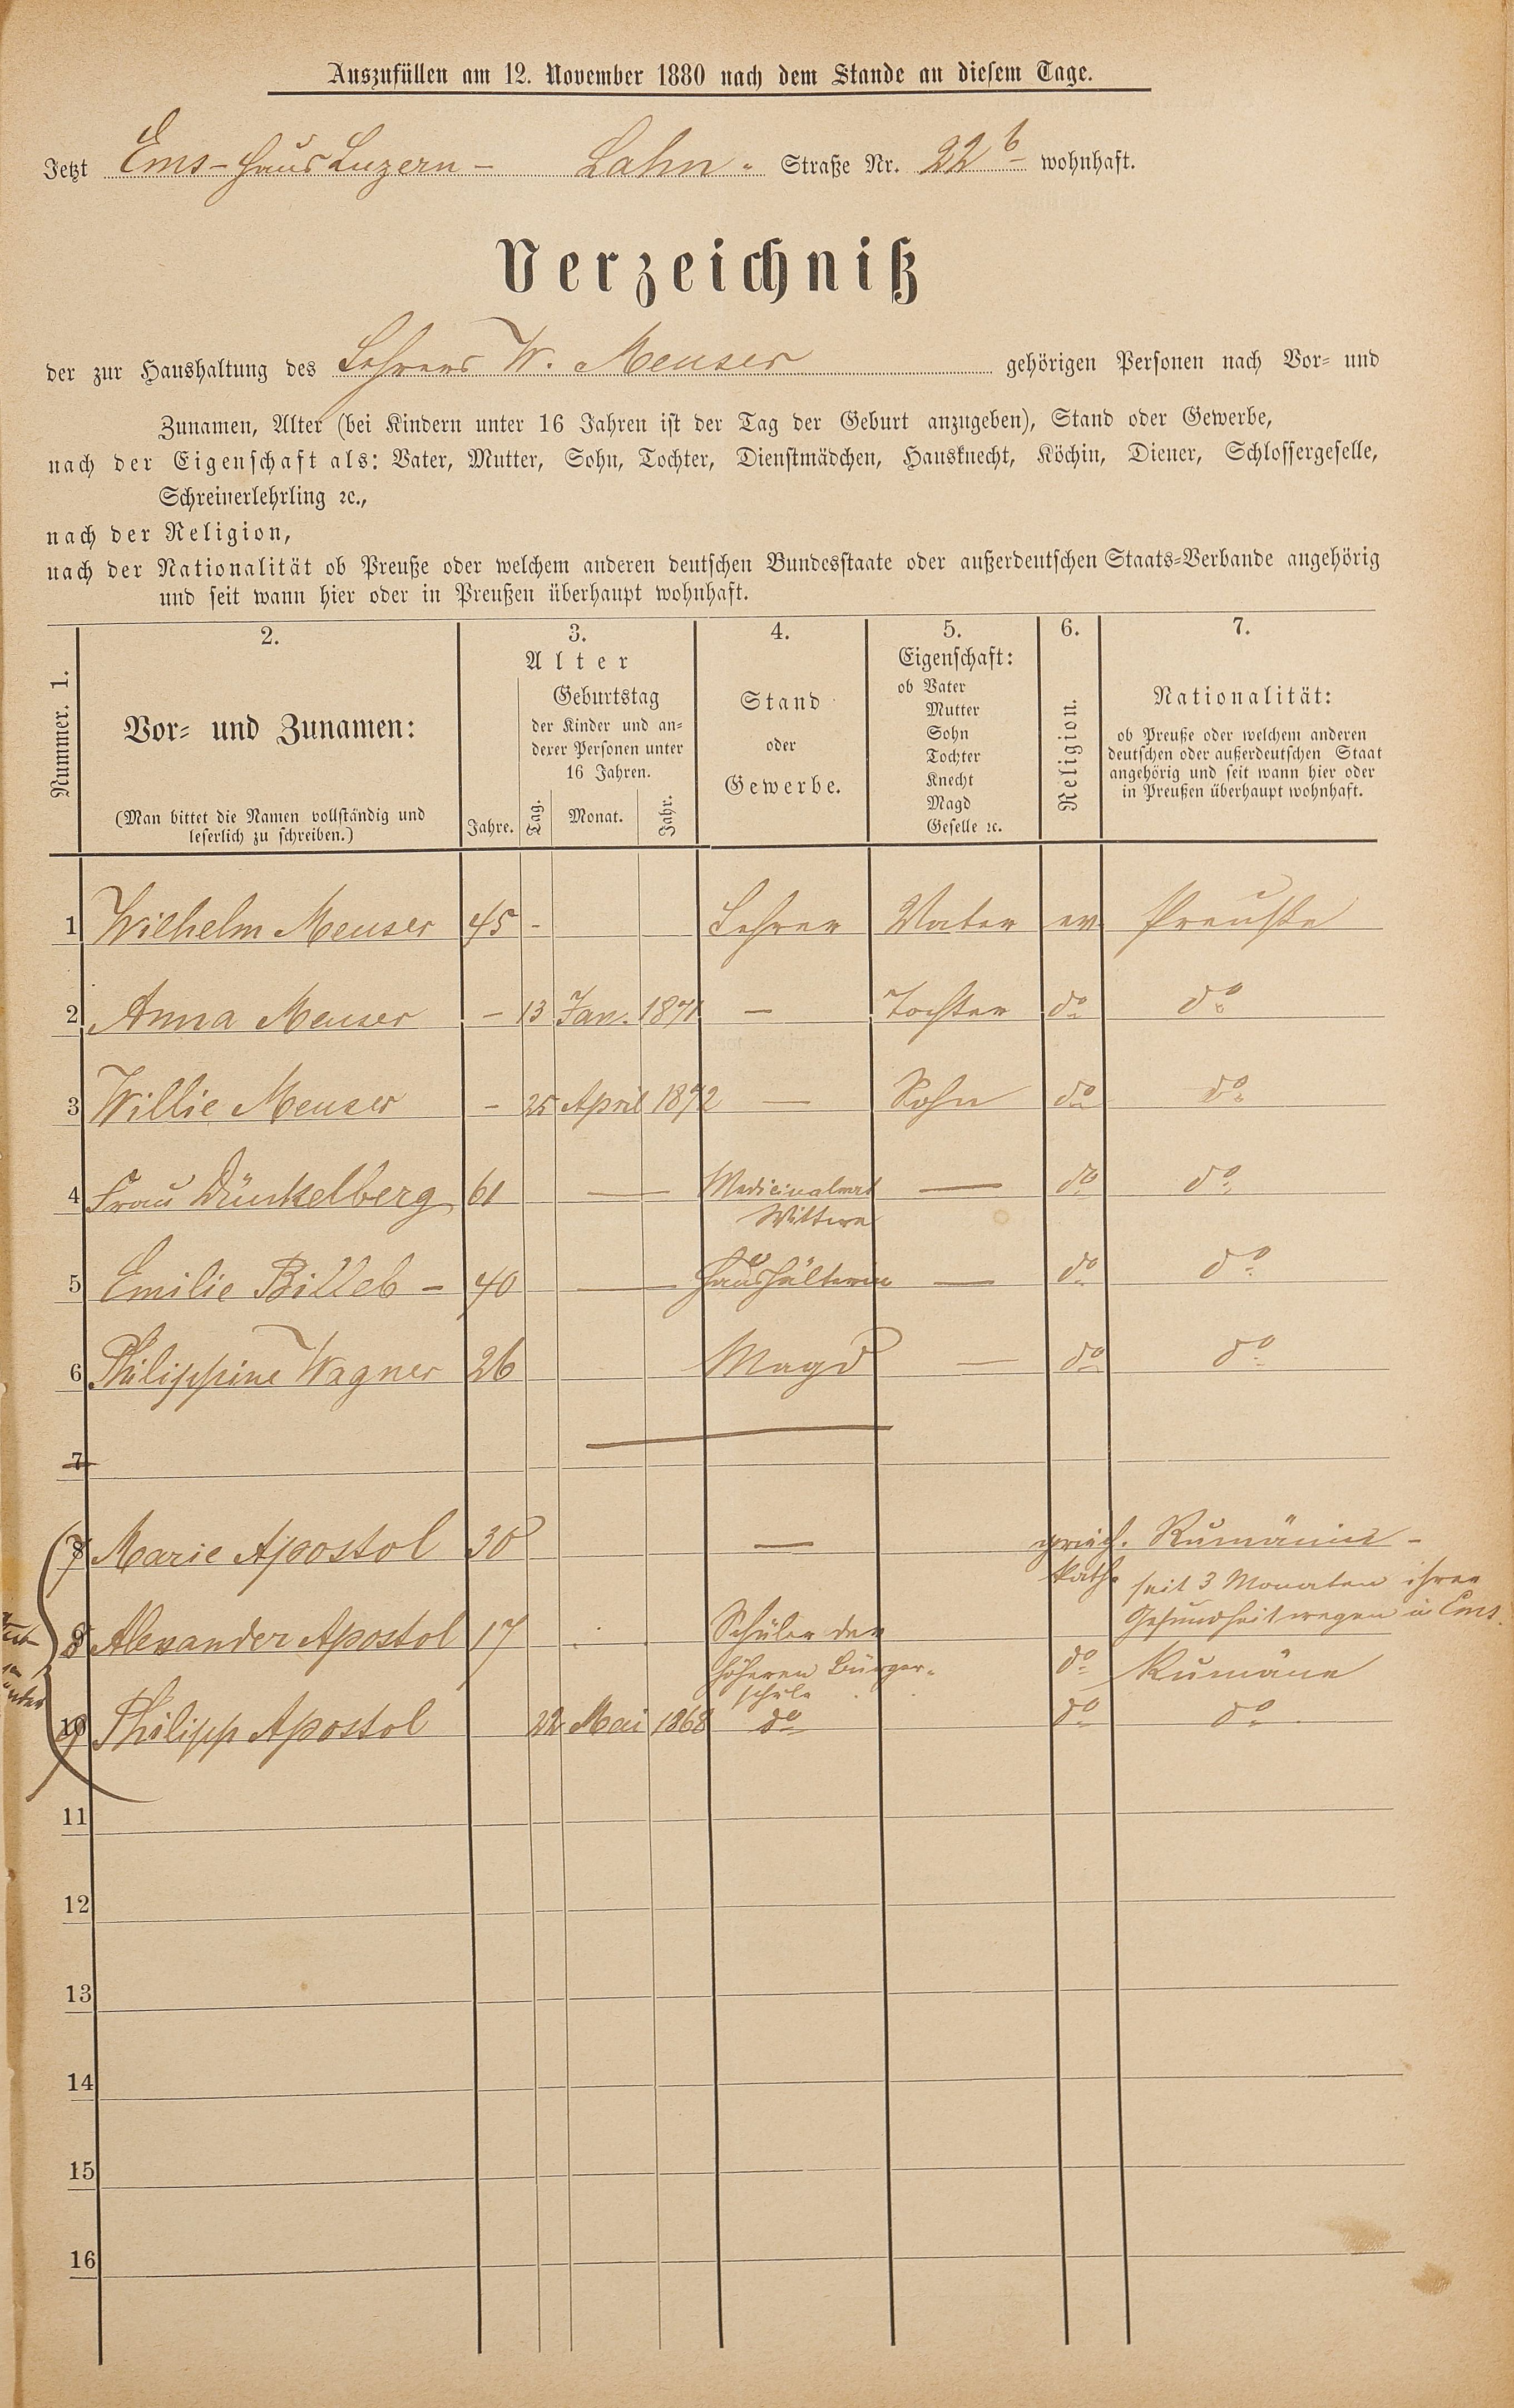 Auszufüllen am 12. November 1880 nach dem Stande an diesem Tage.
Jetzt Ems - Haus Luzern - Lahn - Straße Nr. 22 b wohnhaft.
Verzeichniß
der zur Haushaltung des Lehrers W. Meuser gehörigen Personen nach Vor- und
Zunamen, Alter (bei Kindern unter 16 Jahren ist der Tag der Geburt anzugeben), Stand oder Gewerbe,
nach der Eigenschaft als: Vater, Mutter, Sohn, Tochter, Dienstmädchen, Hausknecht, Köchin, Diener, Schlossergeselle,
Schreinerlehrling ꝛc.,
nach der Religion,
nach der Nationalität ob Preuße oder welchem anderen deutschen Bundesstaate oder außerdeutschen Staats-Verbande angehörig
und seit wann hier oder in Preußen überhaupt wohnhaft.
Nummer. 1.
2.
Vor- und Zunamen:
(Man bittet die Namen vollständig und
leserlich zu schreiben.)
3.
Alter
Jahre.
Geburtstag
der Kinder und an-
derer Personen unter
16 Jahren.
Tag. Monat. Jahr.
4.
Stand
oder
Gewerbe.
5.
Eigenschaft:
ob Vater
Mutter
Sohn
Tochter
Knecht
Magd
Geselle ꝛc.
6.
Religion.
7.
Nationalität:
ob Preuße oder welchem anderen
deutschen oder außerdeutschen Staat
angehörig und seit wann hier oder
in Preußen überhaupt wohnhaft.
1 Wilhelm Meuser 45 - Lehrer Vater ev. Preuße
2 Anna Meuser - 13 Jan. 1871 - Tochter do do
3 Willie Meuser - 25 April 1872 - Sohn do do
4 Frau Dünkelberg 61 - Medicinalrat - do do
Wittwe
5 Emilie Billeb - 40 - Haushälterin - do do
6 Philippine Wagner 26 Magd - do do
7
8 7 Marie Apostol 30 - griech. Rumänin -
kath. seit 3 Monaten ihrer
Gesundheit wegen in Ems.
9 8 Alexander Apostol 17 Schüler der
höheren Bürger- do Rumäne
schule
10 9 Philipp Apostol 22 Mai 1868 do do do
11
12
13
14
15
16